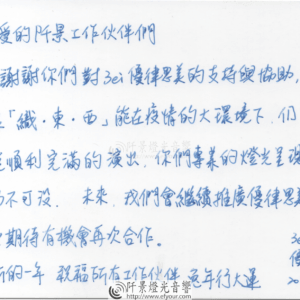 愛的阡景工作伙伴們
謝謝你們對3ei優律思美的支持與協助,
「織·東·西」能在疫情的大環境下,仍
順利充滿的演出,你們專業的燈光呈現
不可沒. 未來,我們會繼續推廣優律思美
期待有機會再次合作.
新的一年 祝福所有工作伙伴 兔年行大運
阡景燈光音響
www.efyour.com